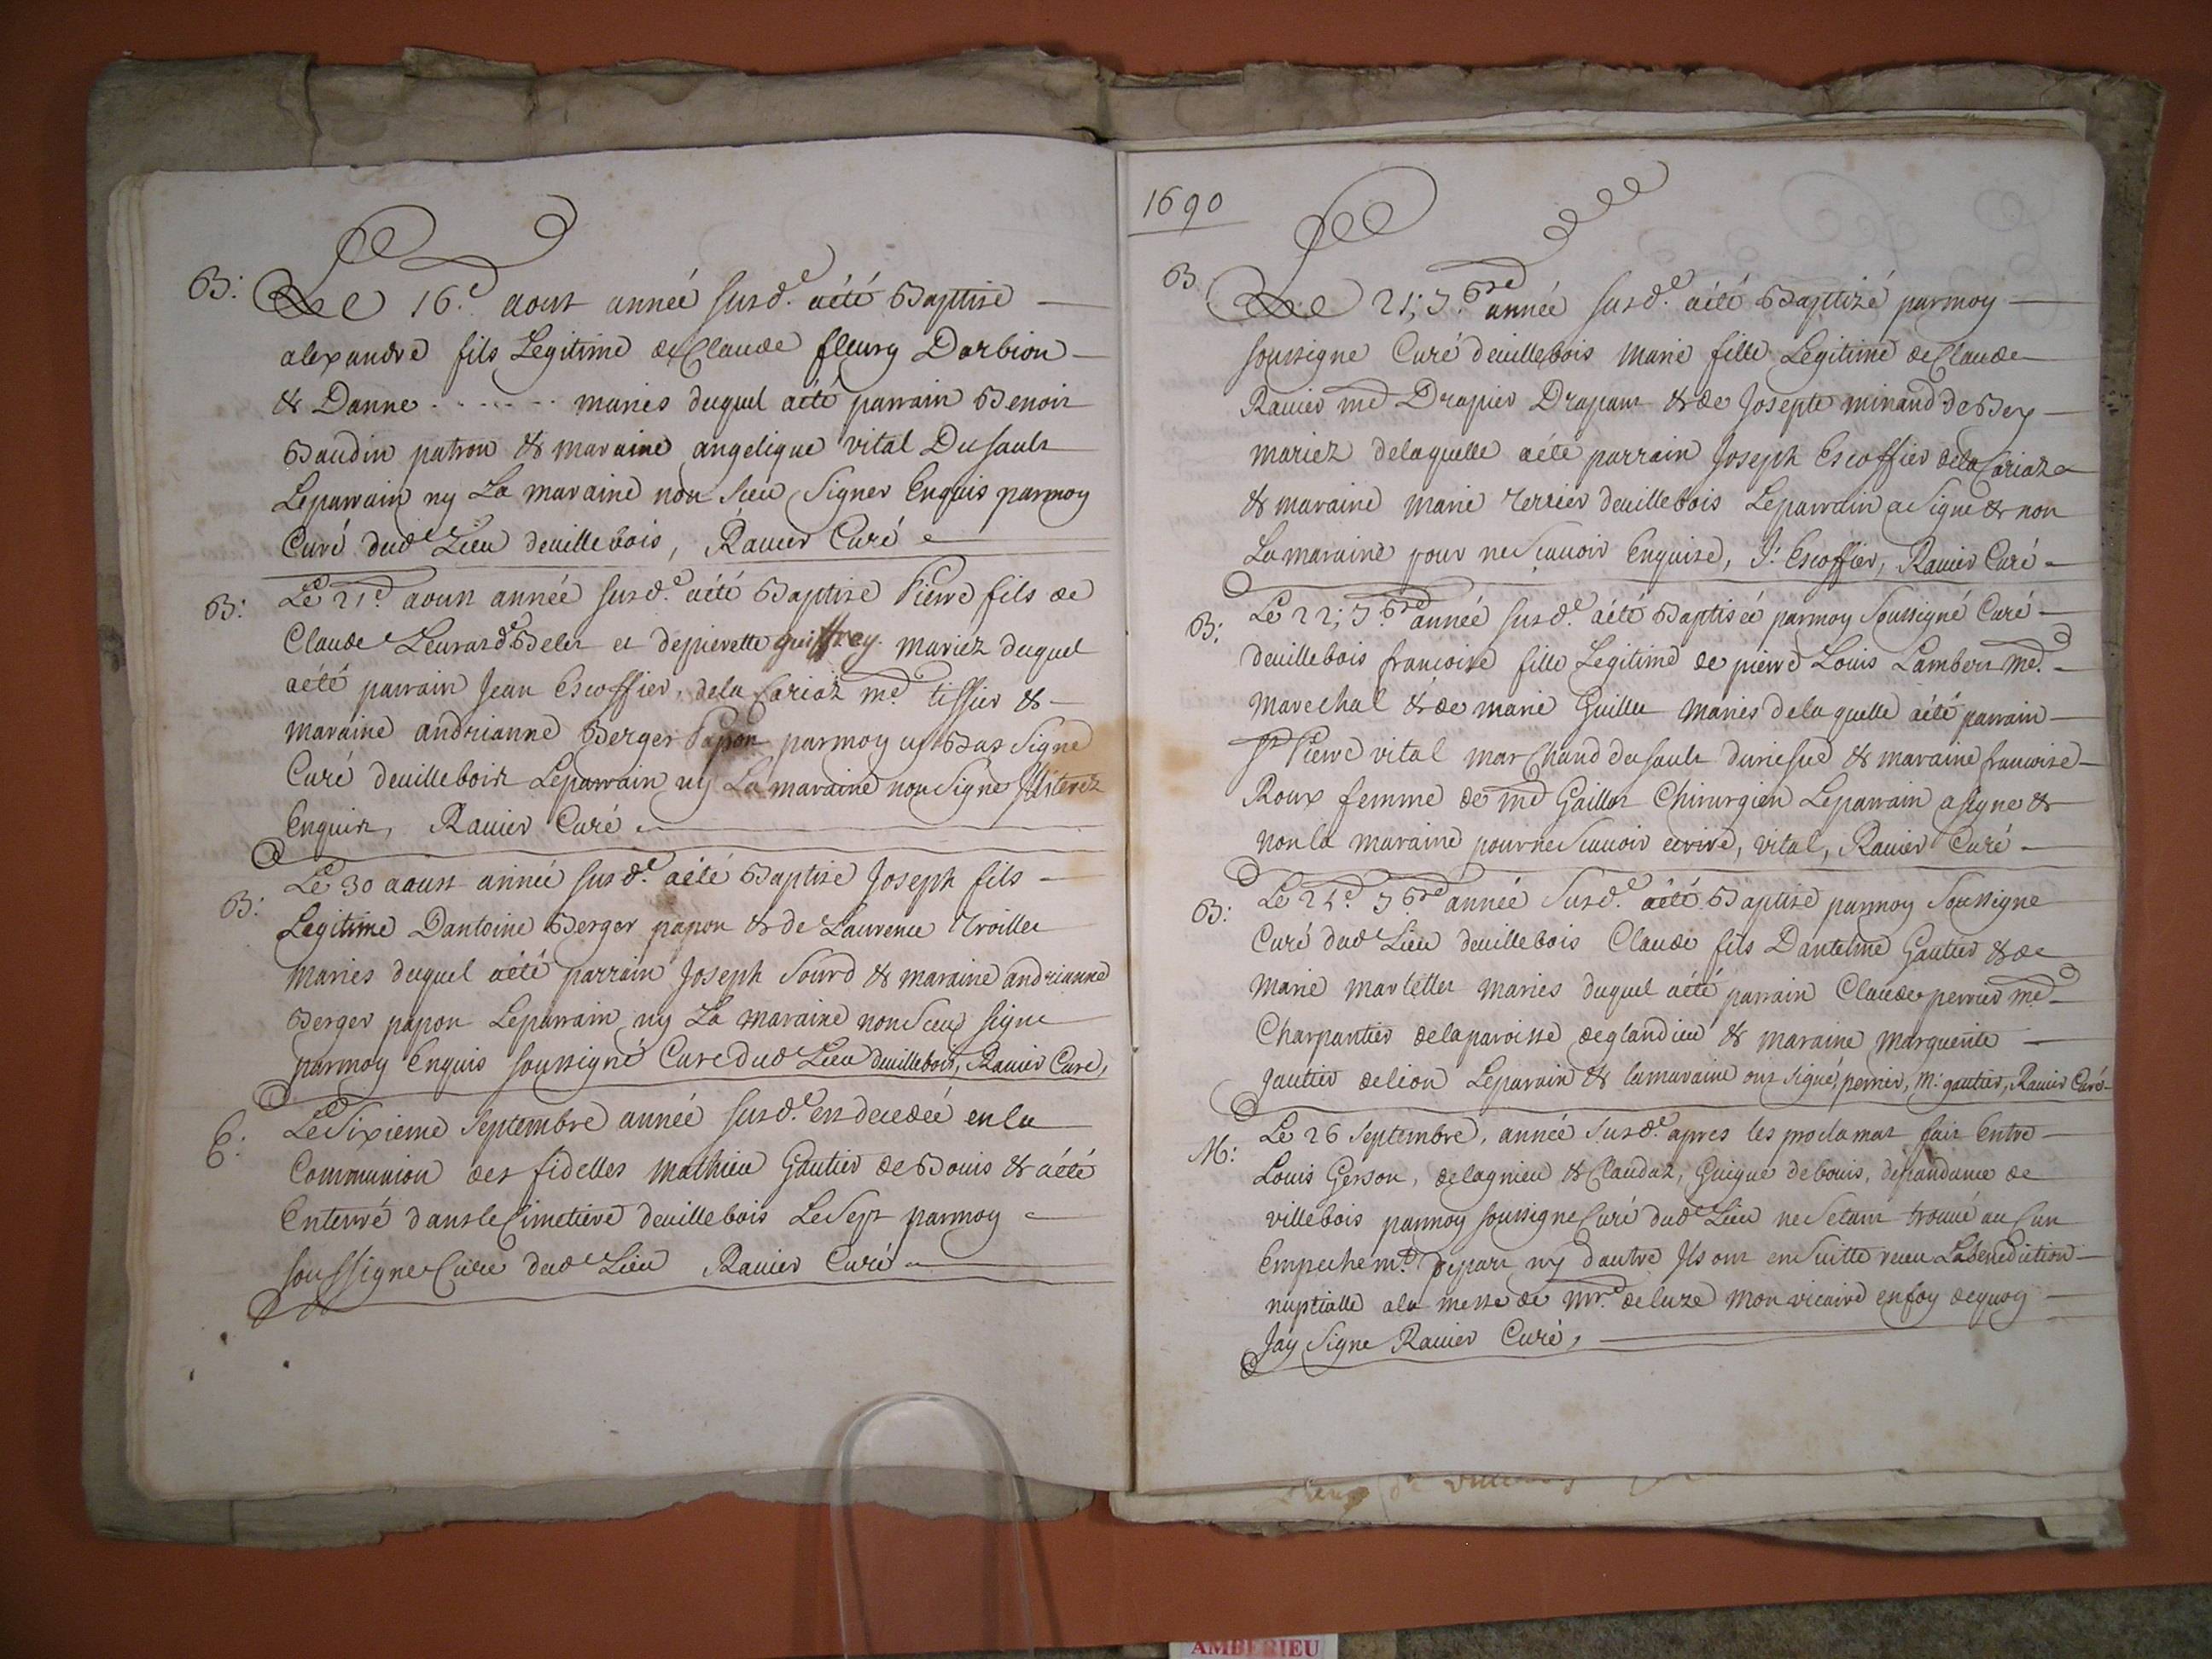 B: Le 16.e aoust année susd.e aété Baptisé
alexandre fils Legitime de Claude fleury Darbion
& Danne . . . . . . mariés duquel aété parrain Benoit
Baudin patron & maraine angelique vital Du sault
Leparrain ny La maraine non sceu signer Enquis parmoy
Curé dud.e Lieu deuillebois, Rauier Curé
B: Le 21.e aoust année susd.e aété Baptisé Pierre fils de
Claude Leurard Belet et depierette guiffrey mariez duquel
aété parrain Jean Escoffier, dela Cariaz m.e tissier &
maraine andrianne Berger Papon parmoy cy Bas signé
Curé deuillebois Leparrain ny La maraine non signé Illiterez
Enquis, Rauier Curé
B: Le 30 aoust année susd.e aété Baptisé Joseph fils
Legitime Dantoine Berger papon & de Laurence Troillet
mariés duquel aété parrain Joseph Sourd & maraine andrianne
Berger papon Leparrain ny La maraine non sceu signe
parmoy Enquis soussigné Curé dud.e Lieu deuillebois, Rauier Curé,
E: Le Sixieme Septembre année susd.e est decedée en la
Communion des fidelles mathieu Gautier de Bouis & aété
Enterré dans le Cimetiere deuillebois Le Sept parmoy
soussigne Curé dud.e Lieu Rauier Curé
1690
B Le 21; 7.bre année susd.e aété Baptizé parmoy
soussigne Curé deuillebois marie fille Legitime de Claude
Rauier me Drapier Drapant & de Josepte minand de Bex
mariez delaquelle aété parrain Joseph Escoffier dela Cariaz
& maraine marie Terrier deuillebois Leparrain a signé & non
La maraine pour ne scauoir Enquise, J. Escoffier, Rauier Curé
B: Le 22; 7.bre année susd.e aété Baptisée parmoy soussigné Curé
deuillebois francoise fille Legitime de pierre Louis Lambert me.
marechal & de marie Guillet mariés delaquelle aété parrain
Sr Pierre vital marchand du sault & maraine francoise
Roux femme de me Gaillot Chirurgien Leparrain a signe &
non la maraine pour ne scauoir ecrire, vital, Rauier Curé
B: Le 25.e 7.bre année susd.e aété Baptisé parmoy soussigne
Curé dud.e Lieu deuillebois Claude fils Dantelme Gautier & de
marie marlettet mariés duquel aété parrain Claude perrier me.
Charpantier delaparoisse deglandieu & maraine marguerite
gautier delion Leparain & lamaraine ont signé, perrier, m. gautier, Rauier Curé
M: Le 26 Septembre, année susd.e apres les proclamat fait Entre
Louis Gerson, delagnieu & Claudaz, Guigue debouis, depandance de
villebois parmoy soussigne Curé dud.e Lieu ne s'etant trouué aucun
Empechemt. depart ny dautre Ils ont ensuitte receu Labenediction
nuptialle ala messe de mr. deluze mon vicaire enfoy dequoy
Jay signe Rauier Curé,
AMBERIEU